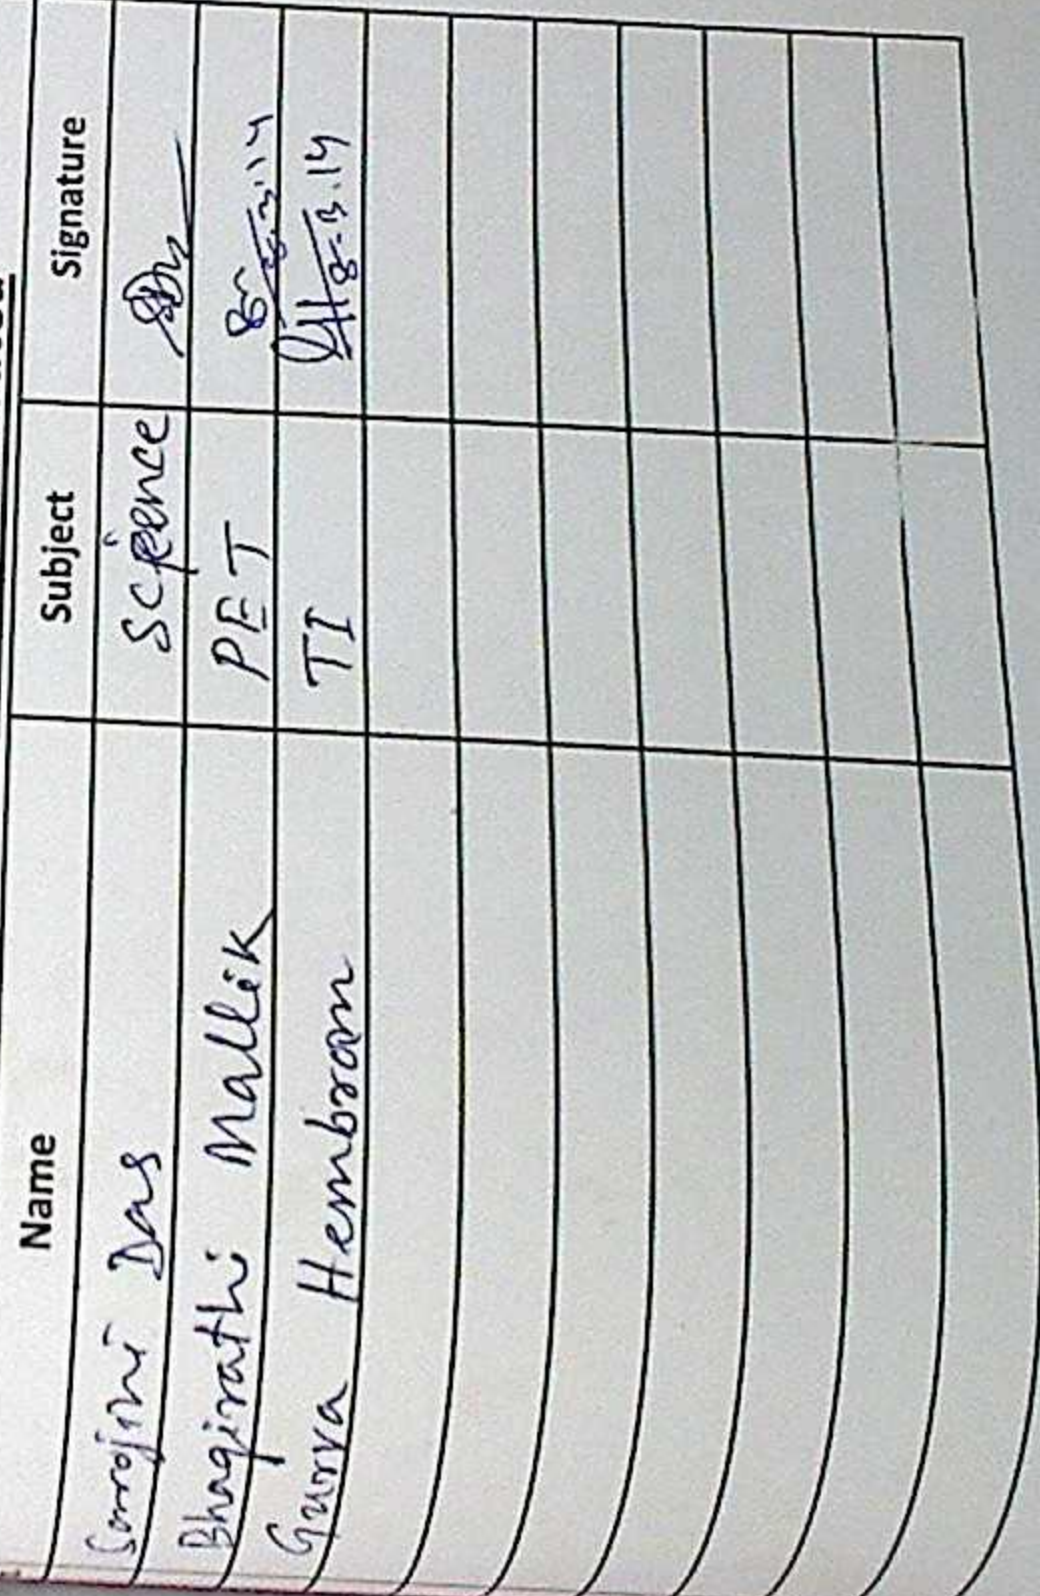 Name Subject Signature
Sarojini Das Science
Bhagirathi Mallik PET 8.3.14
Gurva Hembram TI 8.3.14